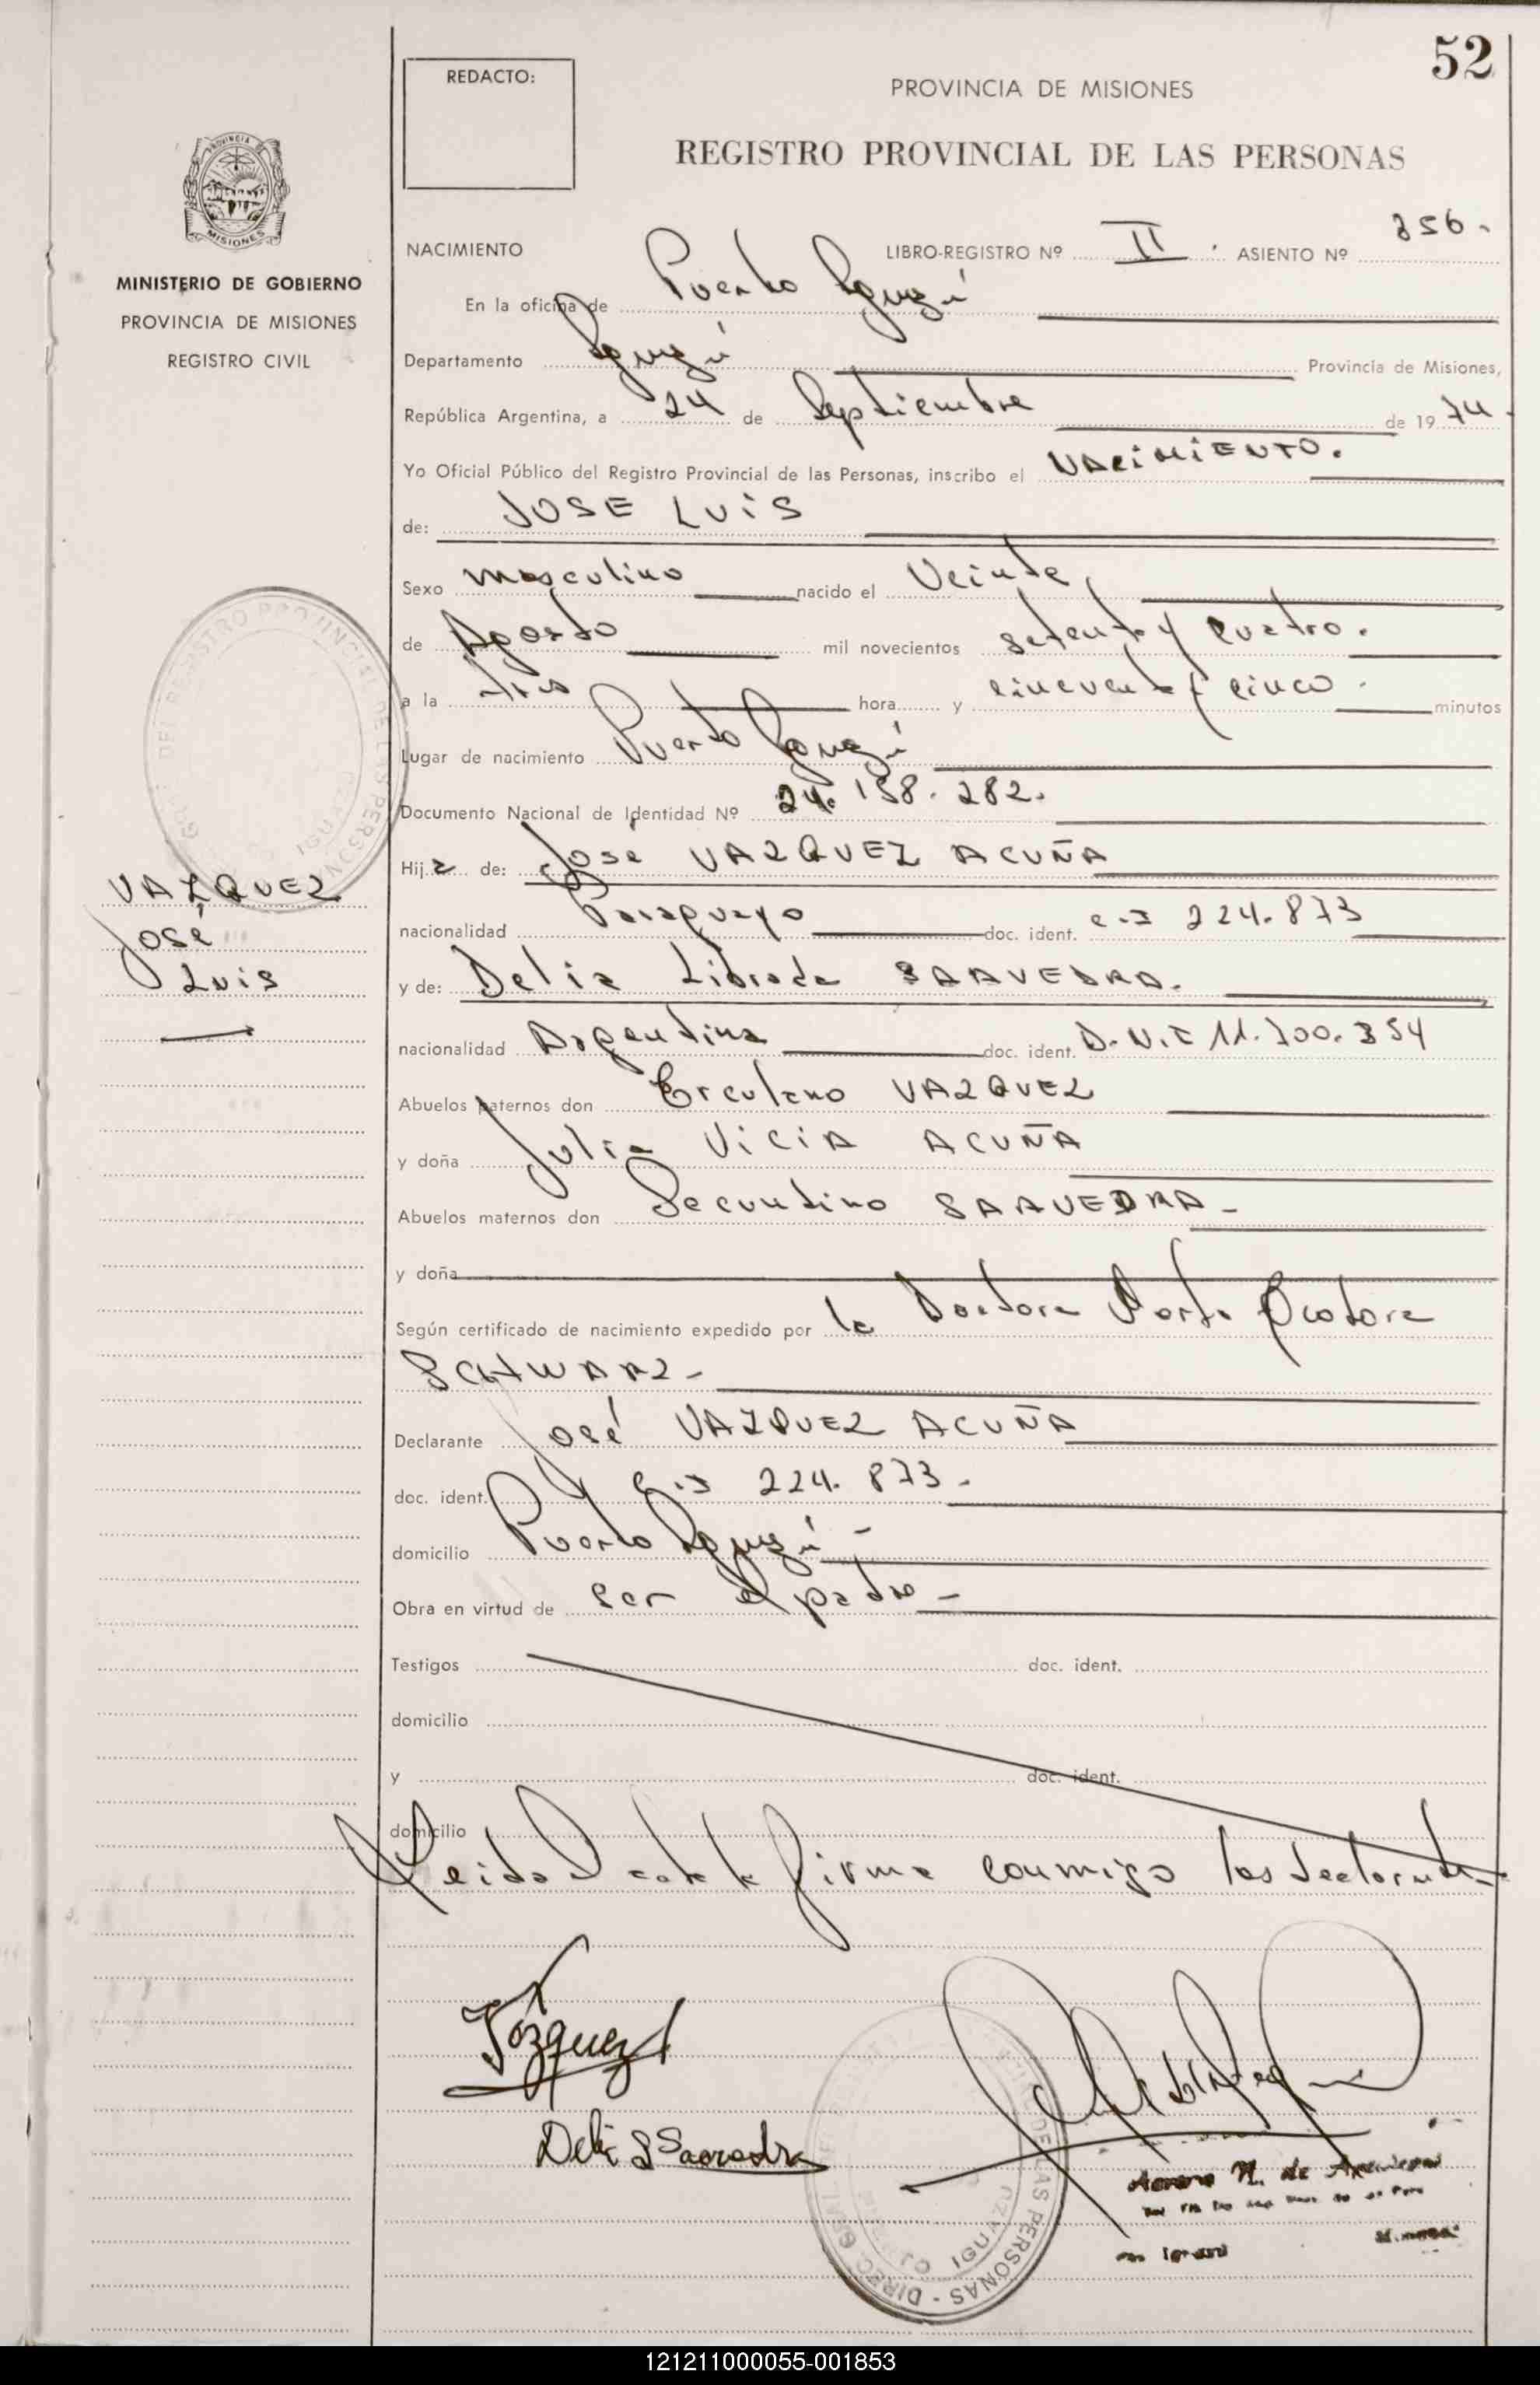 52
REDACTO:
PROVINCIA DE MISIONES
REGISTRO PROVINCIAL DE LAS PERSONAS
MISIONES
MINISTERIO DE GOBIERNO
PROVINCIA DE MISIONES
REGISTRO CIVIL
NACIMIENTO LIBRO-REGISTRO Nº II. ASIENTO Nº 356.
En la oficina de Puerto Iguazú
Departamento Iguazú Provincia de Misiones,
República Argentina, a 24 de Septiembre de 1974.
Yo Oficial Público del Registro Provincial de las Personas, inscribo el NACIMIENTO.
de: JOSE LUIS
Sexo masculino nacido el Veinte
de Agosto mil novecientos setenta y cuatro.
a la tres hora y cincuenta y cinco. minutos
Lugar de nacimiento Puerto Iguazú
Documento Nacional de Identidad Nº 24.158.282.
Hijo de: José VAZQUEZ ACUÑA
nacionalidad Paraguayo doc. ident. c.I 224.873
y de: Delia Librada SAAVEDRA.
nacionalidad Argentina doc. ident. D.N.I 11.700.354
Abuelos paternos don Erculano VAZQUEZ
y doña Julia VICIA ACUÑA
Abuelos maternos don Secundino SAAVEDRA -
y doña
Según certificado de nacimiento expedido por la Doctora Marta
SCHWARZ -
Declarante José VAZQUEZ ACUÑA
doc. ident. c.I 224.873 -
domicilio Puerto Iguazú -
Obra en virtud de ser el padre -
Testigos doc. ident.
domicilio
y doc. ident.
domicilio
Leida el acta la firma conmigo los declarantes
VAZQUEZ
José
Luis
Vázquez
Delia L Saavedra
121211000055-001853